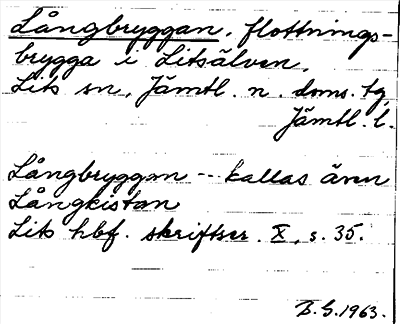 Långbryggan, flottnings-
brygga i Litsälven,
Lits sn, Jämtl. n. doms. tg,
Jämtl. l.
Långbryggan -- kallas även
Långkistan
Lits hbf. skrifter. X, s. 35.
B.G. 1963.